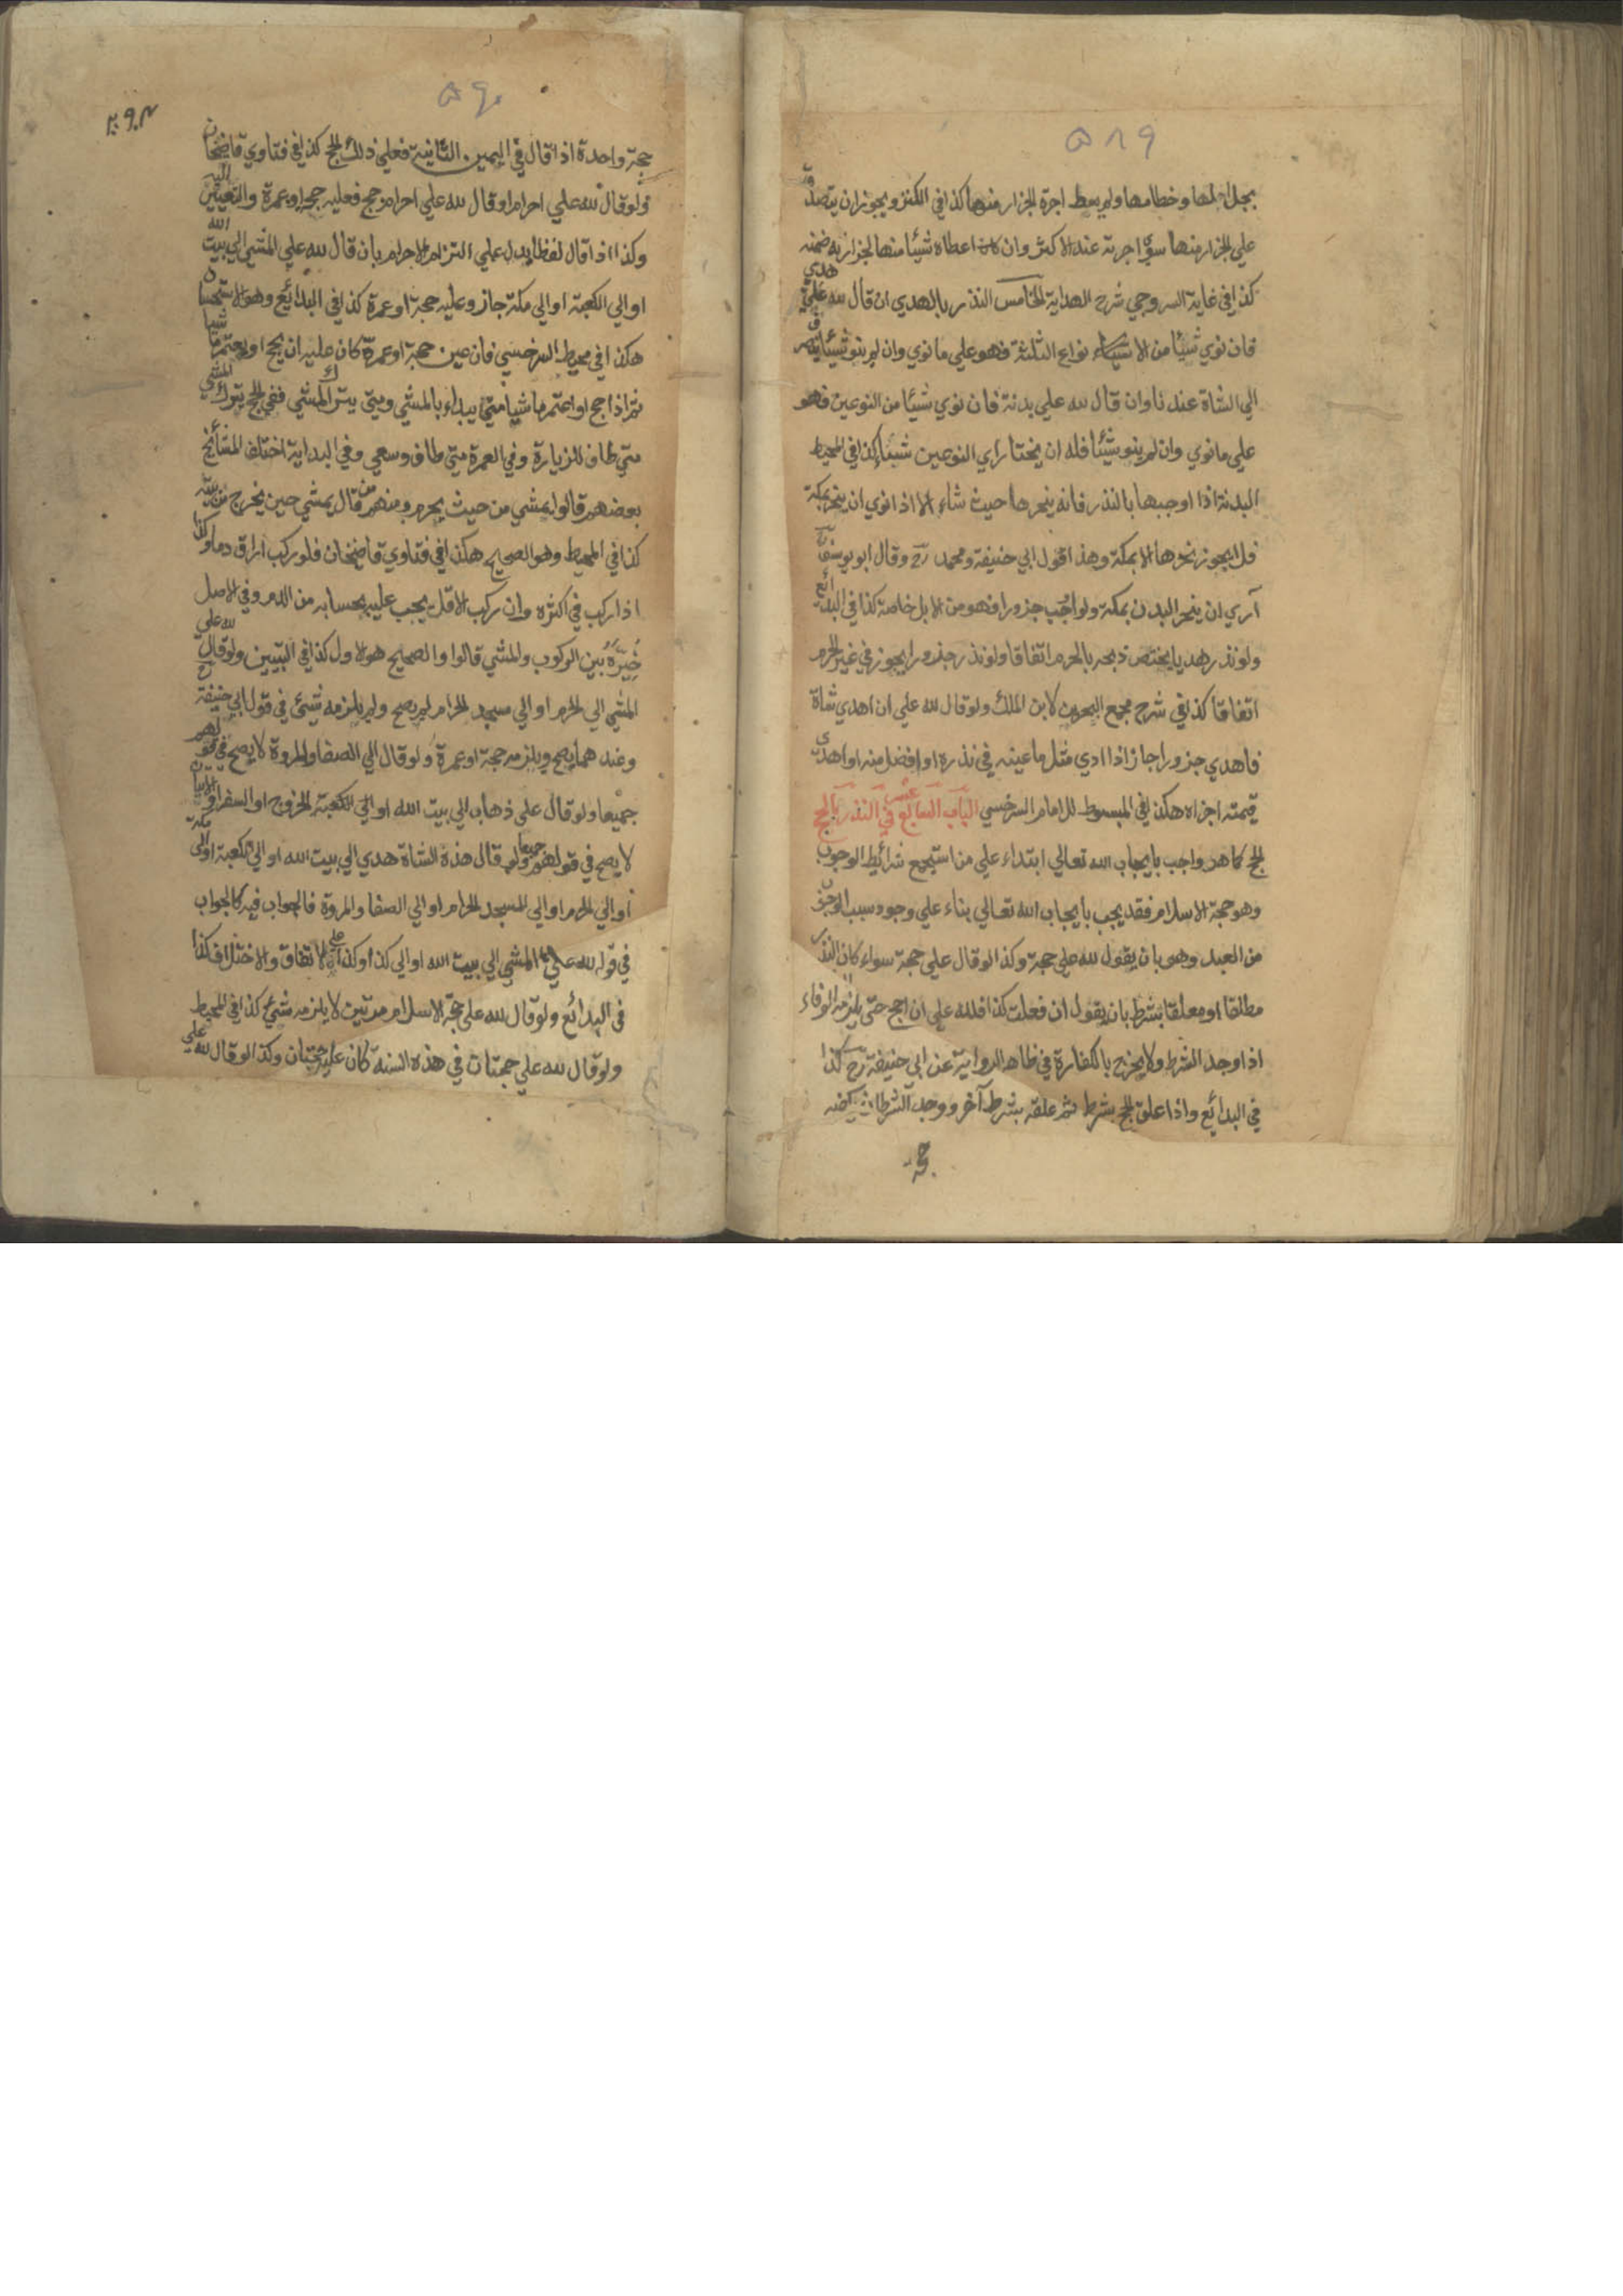 ٥٨٩
بجلالها وخطامها ولم يعط اجرة الجزار منها كذا في الكنز ويجوز ان يتصدق
علي الجزار منها سوي اجرته عند الاكثر وان كان اعطاه شيئا منها لجزارته ضمنه
كذا في غاية السروجي شرح الهداية الخامس النذر بالهدي ان قال لله علي هدي
فان نوي شيئا من الانواع الثلثة فهو علي ما نوي وان لم ينو شيئا ينصرف
الي الشاة عندنا وان قال لله علي بدنة فان نوي شيئا من النوعين فهو
علي ما نوي وان لم ينو شيئا فله ان يختار اي النوعين شيئا كذا في المحيط
البدنة اذا اوجبها بالنذر فانه ينحرها حيث شاء الا اذا نوي ان ينحر بمكة
فلا يجوز نحرها الا بمكة وهذا قول ابي حنيفة ومحمد رح وقال ابو يوسف رح
اري ان ينحر البدن بمكة ولو اوجب جزورا فهو من الابل خاصة كذا في البدائع
ولو نذر هديا يختص ذبحه بالحرم اتفاقا ولو نذر جزورا يجوز في غير الحرم
اتفاقا كذا في شرح مجمع البحرين لابن الملك ولو قال لله علي ان اهدي شاة
فاهدي جزورا جاز اذا ادي مثل ما عينه في نذره او افضل منه او اهدي
قيمته اجزاه هكذا في المبسوط للامام السرخسي الباب السابع عشر في النذر بالحج
الحج كما هو واجب بايجاب الله تعالي ابتداء علي من استجمع شرائط الوجوب
وهو حجة الاسلام فقد يجب بايجاب الله تعالي بناء علي وجود سبب الوجوب
من العبد وهو بان يقول لله علي حجة وكذا لو قال علي حجة سواء كان النذر
مطلقا او معلقا بشرط بان يقول ان فعلت كذا فلله علي ان احج حتي يلزمه الوفاء
اذا وجد الشرط ولا يخرج بالكفارة في ظاهر الرواية عن ابي حنيفة رح كذا
في البدائع واذا علق الحج بشرط ثم علقه بشرط آخر ووجد الشرطان يكفيه
حجة
٥٩٠
حجة واحدة اذا قال في اليمين الثانية فعلي ذلك الحج كذا في فتاوي قاضيخان
ولو قال لله علي احرام او قال لله علي احرام حج فعليه حجة او عمرة والتعيين اليه
وكذا اذا قال لفظا يدل علي التزام الاحرام بان قال لله علي المشي الي بيت الله
او الي الكعبة او الي مكة جاز وعليه حجة او عمرة كذا في البدائع وهو الاستحسان
هكذا في محيط السرخسي فان عين حجة او عمرة كان عليه ان يحج او يعتمر ماشيا
ثم اذا حج او اعتمر ماشيا متي يبداء بالمشي ومتي يترك المشي ففي الحج يترك المشي
متي طاف للزيارة وفي العمرة متي طاف وسعي وفي البداية اختلف المشائخ
بعضهم قالوا يمشي من حيث يحرم ومنهم من قال يمشي حين يخرج من بيته
كذا في المحيط وهو الصحيح هكذا في فتاوي قاضيخان فلو ركب اراق دما وكذا
اذا ركب في اكثره وان ركب الاقل يجب عليه بحسابه من الدم وفي الاصل
خيره بين الركوب والمشي قالوا والصحيح هو الاول كذا في التبيين ولو قال لله علي
المشي الي الحرم او الي مسجد الحرام لم يصح ولم يلزمه شيئ في قول ابي حنيفة رح
وعندهما يصح ويلزمه حجة او عمرة ولو قال الي الصفا والمروة لا يصح في قولهم
جميعا ولو قال علي ذهاب الي بيت الله او الي الكعبة او الخروج او السفر او الاتيان
لا يصح في قولهم جميعا ولو قال هذه الشاة هدي الي بيت الله او الي الكعبة او الي مكة
او الي الحرم او الي المسجد الحرام او الي الصفا والمروة فالجواب فيه كالجواب
في قوله لله علي المشي الي بيت الله او الي كذا وكذا علي الاتفاق والاختلاف كذا
في البدائع ولو قال لله علي حجة الاسلام مرتين لا يلزمه شيئ كذا في المحيط
ولو قال لله علي حجتان في هذه السنة كان عليه حجتان وكذا لو قال لله علي